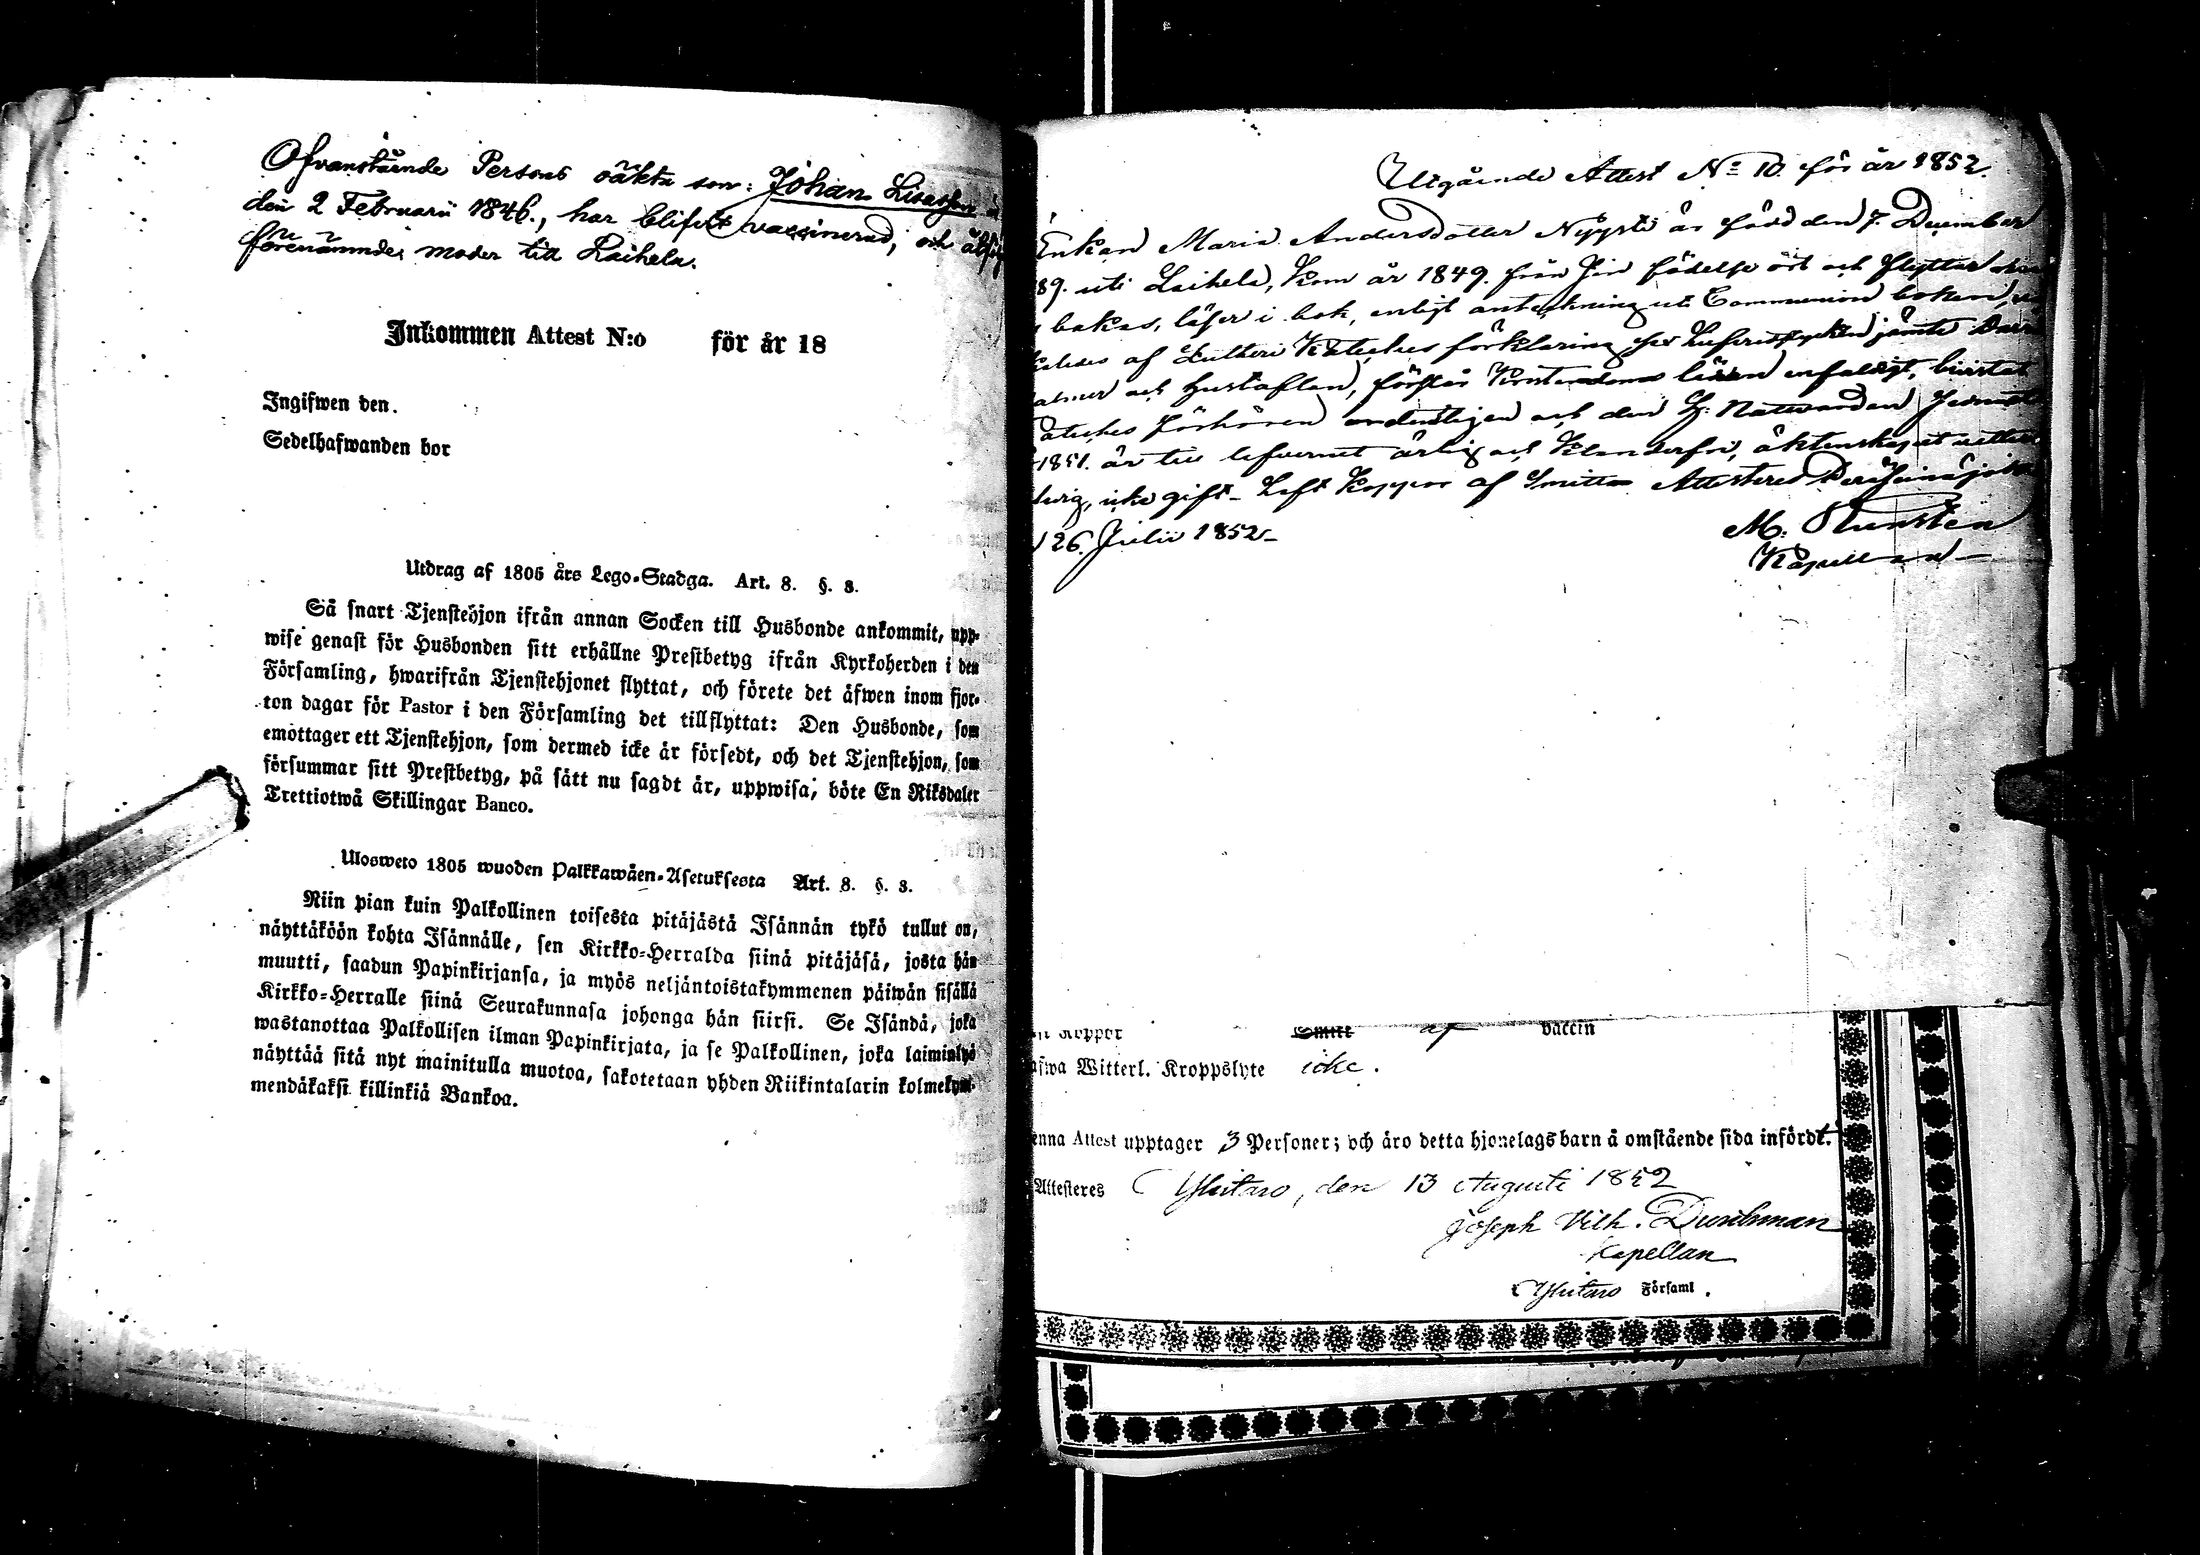 Ofvanstående Persons oäkta son: Johan Lisasson
den 2 Februarii 1846., har blifvit vaccinerad, och
förenämnde moder till Laihela.
Inkommen Attest N:o för år 18
Ingifwen den.
Sedelhafwanden bor
Utdrag af 1805 års Lego-Stadga. Art. 8. §. 3.
Så snart Tjenstehjon ifrån annan Socken till Husbonde ankommit, upp-
wise genast för Husbonden sitt erhållne Prestbetyg ifrån Kyrkoherden i den
Församling, hwarifrån Tjenstehjonet flyttat, och förete det äfwen inom fjor-
ton dagar för Pastor i den Församling det tillflyttat: Den Husbonde, som
emottager ett Tjenstehjon, som dermed icke är försedt, och det Tjenstehjon, som
försummar sitt Prestbetyg, på sätt nu sagdt är, uppwisa, böte En Riksdaler
Trettiotwå Skillingar Banco.
Ulosweto 1805 wuoden Palkkawäen-Asetuksesta Art. 8. §. 3.
Niin pian kuin Palkollinen toisesta pitäjästä Isännän tykö tullut on,
näyttäköön kohta Isännälle, sen Kirkko-Herralda siinä pitäjäsä, josta hän
muutti, saadun Papinkirjansa, ja myös neljäntoistakymmenen päiwän sisällä
Kirkko-Herralle siinä Seurakunnasa johonga hän siirsi. Se Isändä, joka
wastanottaa Palkollisen ilman Papinkirjata, ja se Palkollinen, joka laiminlyö
näyttää sitä nyt mainitulla muotoa, sakotetaan yhden Riikintalarin kolmekym-
mendäkaksi killinkiä Bankoa.
Utgående Attest No 10. för år 1852.
Enkan Maria Andersdotter Nygste är född den 7. December
89. uti Laihela, kom år 1849. från sin födelse ort och flyttar
bakas, läser i bok, enligt anteckning uti Communion boken,
af Lutheri Kateches förklaring jämte
och Hustaflan, förstår Kristendoms läran enfaldigt, bivistat
förhören ordentligen och den H. Nattvarden
1851. är till lefvernet ärlig och klanderfri, äktenskapet
icke gift - haft Koppor af Smitta Attesteres
26. Julii 1852 -
M.
Kapellan
Koppor Smitt af Vaccin
afwa Witterl. Kroppslyte icke.
enna Attest upptager 3 Personer; och äro detta hjonelags barn å omstående sida infördt.
Attesteres Ylistaro, den 13 Augusti 1852
Joseph Vilh. Durchman
Kapellan
i Ylistaro Församl.